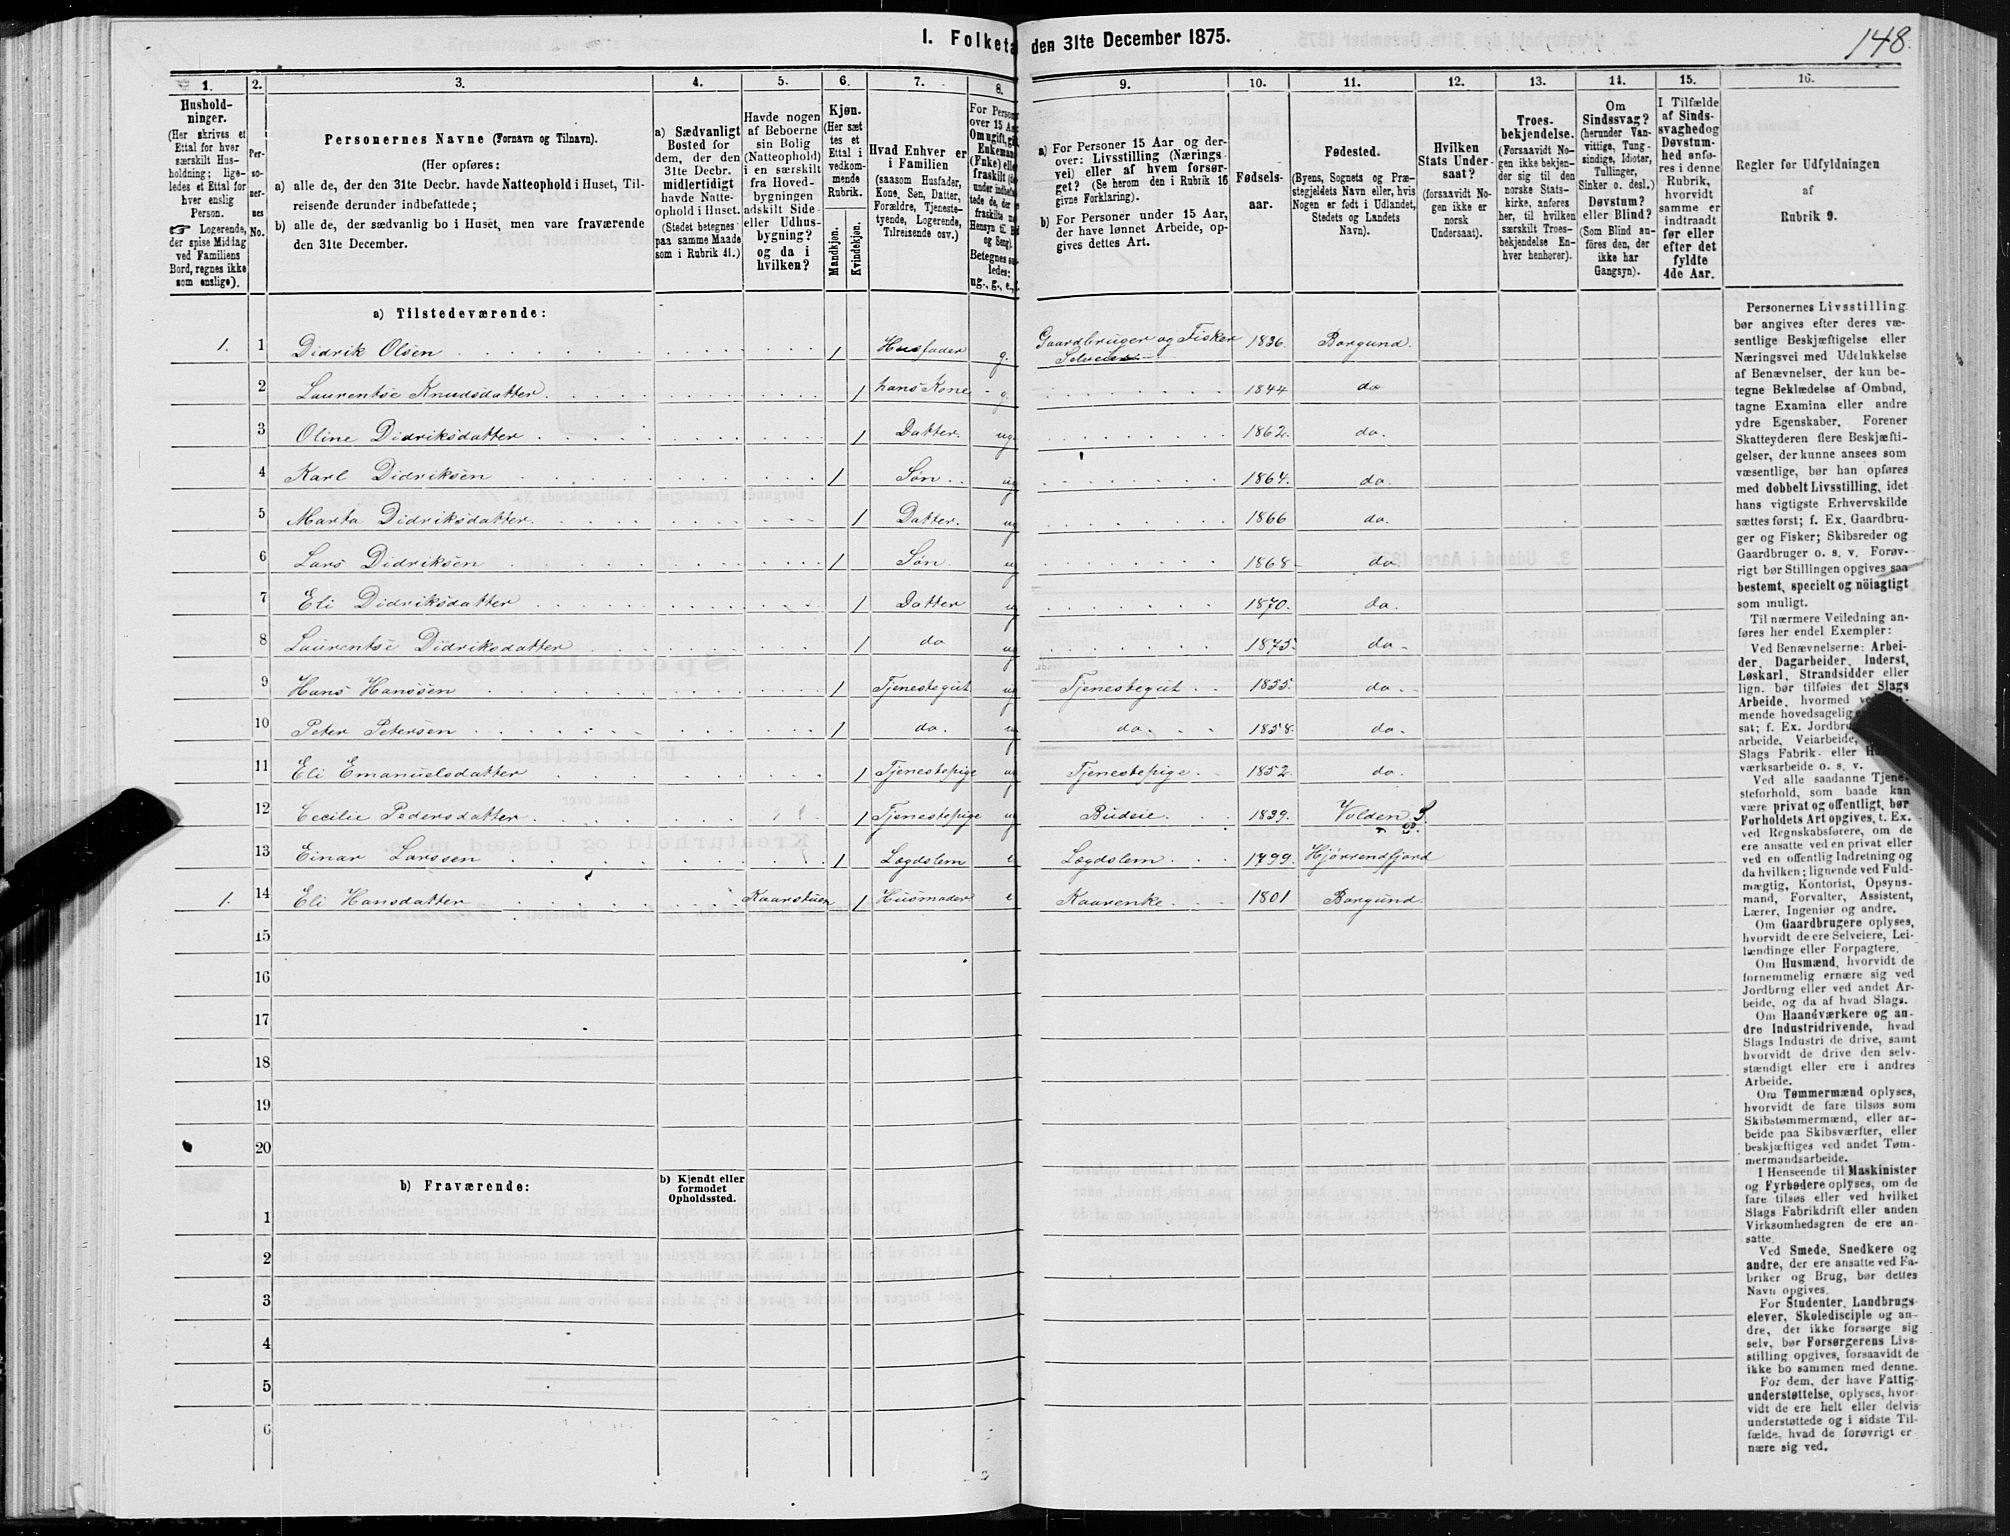 148.
I. Folketa den 31te December 1875.
1.
Hushold-
ninger.
(Her skrives et
Ettal for hver
særskilt Hus-
holdning; lige-
ledes et Ettal for
hver enslig
Person.
☞ Logerende,
der spise Middag
ved Familiens
Bord, regnes ikke
som enslige).
2.
Per-
so-
ner-
nes
No.
3.
Personernes Navne (Fornavn og Tilnavn).
(Her opføres:
a) alle de, der den 31te Decbr. havde Natteophold i Huset, Til-
reisende derunder indbefattede;
b) alle de, der sædvanlig bo i Huset, men vare fraværende
den 31te December.
4.
a) Sædvanligt
Bosted for
dem, der den
31te Decbr.
midlertidigt
havde Natte-
ophold i Huset.
(Stedet betegnes
paa samme Maade
som i Rubrik 11.)
5.
Havde nogen
af Beboerne
sin Bolig
(Natteophold)
i en særskilt
fra Hoved-
bygningen
adskilt Side-
eller Udhus-
bygning?
og da i
hvilken?
6.
Kjøn.
(Her sæt
tes et
Ettal i
vedkom-
mende
Rubrik.
Mandkjøn.
Kvindekjøn.
7.
Hvad Enhver er
i Familien
(saasom Husfader,
Kone, Søn, Datter,
Forældre, Tjeneste-
tyende, Logerende,
Tilreisende osv.)
8.
For Person
over 15 Aa
Om ugift, gif
Enkeman
(Enke) elle
fraskilt (de
under indbefat
tede de, der e
fraskilte m
Hensyn til B
og Seng).
Betegnes sa
ledes:
ug., g., e., f.
9.
a) For Personer 15 Aar og der-
over: Livsstilling (Nærings-
vei) eller af hvem forsør-
get? (Se herom den i Rubrik 16
givne Forklaring).
b) For Personer under 15 Aar,
der have lønnet Arbeide, op-
gives dettes Art.
10.
Fødsels-
aar.
11.
Fødested.
(Byens, Sognets og Præ-
stegjeldets Navn eller, hvis
Nogen er født i Udlandet,
Stedets og Landets
Navn).
12.
Hvilken
Stats Under-
saat?
(forsaavidt No-
gen ikke er
norsk
Undersaat).
13.
Troes-
bekjendelse.
(Forsaavidt No-
gen ikke bekjen-
der sig til den
norske Stats-
kirke, anføres
her, til hvilken
særskilt Troes-
bekjendelse En-
hver henhører).
14.
Om
Sindssvag?
(herunder Van-
vittige, Tung-
sindige, Idioter,
Tullinger,
Sinker o. desl.)
Døvstum?
eller Blind?
(Som Blind an-
føres den, der
ikke har
Gangsyn).
15.
I Tilfælde
af Sinds-
svaghed og
Døvstum-
hed anfø-
res i denne
Rubrik,
hvorvidt
samme er
indtraadt
før eller
efter det
fyldte
4de Aar.
16.
Regler for Udfyldningen
af
Rubrik 9.
a) Tilstedeværende:
1. 1 Didrik Olsen 1 Husfader g. Gaardbruger og Fisker 1836. Borgund.
Selveier
2 Laurentse Knudsdatter. 1 hans Kone g. 1844 do
3 Oline Didriksdatter 1 Datter. ug. 1862. do.
4 Karl Didriksen 1 Søn ug 1864. do
5 Marta Didriksdatter. 1 Datter. ug 1866 do.
6 Lars Didriksen 1 Søn ug 1868 do
7 Eli Didriksdatter 1 Datter ug 1870. do.
8 Laurentse Didriksdatter 1 do ug 1875. do
9 Hans Hanssen 1 Tjenestegut ug Tjenestegut 1855. do.
10 Peter Petersen 1 do. ug do. 1858. do.
11 Eli Emanuelsdatter 1 Tjenestepige ug Tjenestepige 1852. do.
12 Cecilie Pedersdatter 1 Tjenestepige ug Budeie. 1839. Volden
13 Einar Larssen 1 Lægdslem e Lægdslem. 1799. Hjørrendfjord
1. 14 Eli Hansdatter Kaarstuen 1 Husmoder e Kaarenke. 1801 Borgund.
15
16
17
18
19
20
b) Fraværende:
b) Kjendt eller
formodet
Opholdssted.
1
2
3
4
5
6
Personernes Livsstilling
bør angives efter deres væ-
sentlige Beskjæftigelse eller
Næringsvei med Udelukkelse
af Benævnelser, der kun be-
tegne Beklædelse af Ombud,
tagne Examina eller andre
ydre Egenskaber. Forener
Skatteyderen flere Beskjæfti-
gelser, der kunne ansees som
væsentlige, bør han opføres
med dobbelt Livsstilling, idet
hans vigtigste Erhvervskilde
sættes først; f. Ex. Gaardbru-
ger og Fisker; Skibsreder og
Gaardbruger o. s. v. Forøv-
rigt bør Stillingen opgives saa
bestemt, specielt og nöiagtigt
som muligt.
Til nærmere Veiledning an-
føres her endel Exempler:
Ved Benævnelserne: Arbei-
der, Dagarbeider, Inderst,
Løskarl, Strandsidder eller
lign. bør tilføies det Slags
Arbeide, hvormed
mende hovedsagelig
sat; f. Ex. Jordbru
arbeide, Veiarbeide,
Slags Fabrik- eller
værksarbeide o. s. v.
Ved alle saadanne Tjene-
steforhold, som baade kan
være privat og offentligt, bør
Forholdets Art opgives, t. Ex.
ved Regnskabsførere, om de
ere ansatte ved en privat eller
ved en offentlig Indretning og
da hvilken; lignende ved Fuld-
mægtig, Kontorist, Opsyns-
mand, Forvalter, Assistent,
Lærer, Ingeniør og andre.
Om Gaardbrugere oplyses,
hvorvidt de ere Selveiere, Lei-
lændinge eller Forpagtere.
Om Husmænd, hvorvidt de
fornemmelig ernære sig ved
Jordbrug eller ved andet Ar-
beide, og da af hvad Slags.
Om Haandværkere og an-
dre Industridrivende, hvad
Slags Industri de drive, samt
hvorvidt de drive den selv-
stændigt eller ere i andres
Arbeide.
Om Tømmermænd oplyses,
hvorvidt de fare tilsøs som
Skibstømmermænd, eller ar-
beide paa Skibsværfter, eller
beskjæftiges ved andet Tøm-
mermandsarbeide.
I Henseende til Maskinister
og Fyrbødere oplyses, om de
fare tilsøs eller ved hvilket
Slags Fabrikdrift eller anden
Virksomhedsgren de ere an-
satte.
Ved Smede, Snedkere og
andre, der ere ansatte ved Fa-
briker og Brug, bør dettes
Navn opgives.
For Studenter, Landbrugs-
elever, Skoledisciple og an-
dre, der ikke forsørge sig
selv, bør Forsørgerens Livs-
stilling opgives, forsaavidt de
ikke bo sammen med denne.
For dem, der have Fattig-
understøttelse, oplyses, hvor-
vidt de ere helt eller delvis
understøttede og i sidste Til-
fælde, hvad de forøvrigt er
nære sig ved.